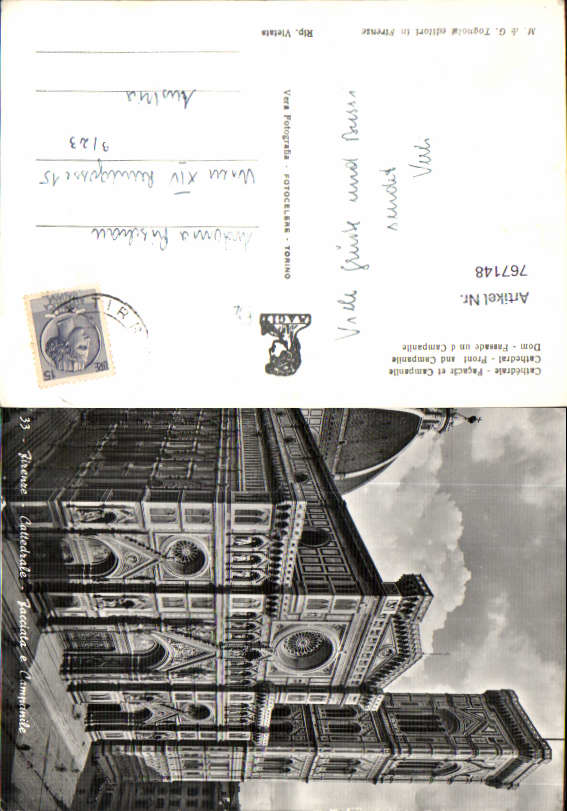 Cathédrale - Façacăt et Campanile
Cathedral - Front and Campanile
Dom - Fassade un d Campanile
Artikel Nr.
767148
Viele Grüsse und Bussi
sendet
Vera Fotografia - FOTOCELERE - TORINO
LIRE
15
Wien XIV
15
9/23
Austria
M. & G. Tognolai editori in Firenze
Rip. Vietata
33 - Firenze - Cattedrale - Facciata e Campanile